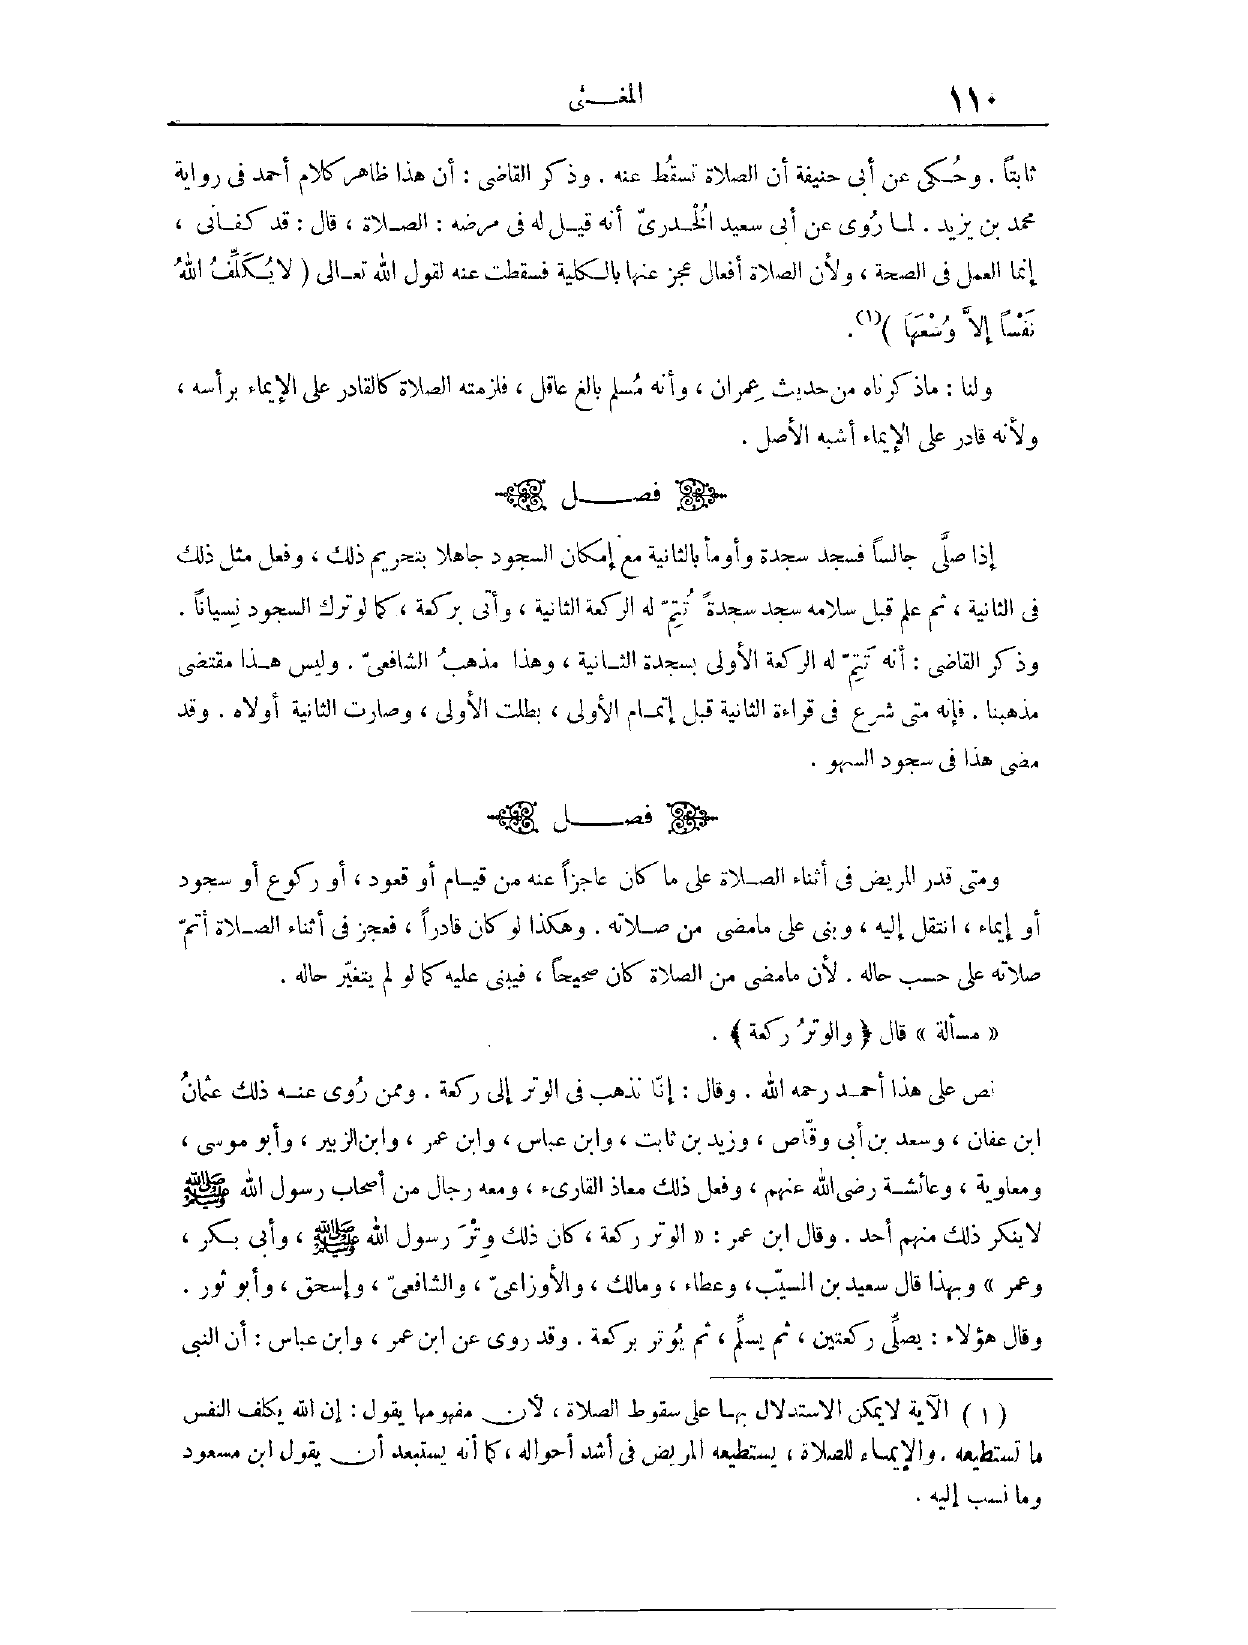 ١١٠ المغـــنى
ثابتاً . وحُـكى عن أبى حنيفة أن الصلاة تسقُط عنه . وذكر القاضى : أن هذا ظاهر كلام أحمد فى رواية
محمد بن يزيد . لمـا رُوى عن أبى سعيد الخُـدرىّ أنه قيـل له فى مرضه : الصـلاة ، قال : قد كفـانى ،
إنما العمل فى الصحة ، ولأن الصلاة أفعال عجز عنها بالـكلية فسقطت عنه لقول الله تعـالى ( لَا يُـكَلِّفُ اللهُ
نَفْسًا إلاَّ وُسْعَهَا )(١).
ولنا : ماذكرناه من حديث عِمران ، وأنه مُسلم بالغ عاقل ، فلزمته الصلاة كالقادر على الإيماء برأسه ،
ولأنه قادر على الإيماء أشبه الأصل .
فصـــل
إذا صلَّى جالساً فسجد سجدة وأومأ بالثانية مع إمكان السجود جاهلا بتحريم ذلك ، وفعل مثل ذلك
فى الثانية ، ثم علم قبل سلامه سجد سجدةً تُتِمّ له الركعة الثانية ، وأتى بركعة ، كما لو ترك السجود نِسياناً .
وذكر القاضى : أنه تَتِمّ له الركعة الأولى بسجدة الثـانية ، وهذا مذهبُ الشافعىّ . وليس هـذا مقتضى
مذهبنا . فإنه متى شرع فى قراءة الثانية قبل إتمـام الأولى ، بطلت الأولى ، وصارت الثانية أولاه . وقد
مضى هذا فى سجود السهو .
فصـــل
ومتى قدر المريض فى أثناء الصـلاة على ما كان عاجزاً عنه من قيـام أو قعود ، أو ركوع أو سجود
أو إيماء ، انتقل إليه ، وبنى على مامضى من صـلاته . وهكذا لو كان قادراً ، فعجز فى أثناء الصـلاة أتمّ
صلاته على حسب حاله . لأن مامضى من الصلاة كان صحيحاً ، فيبنى عليه كما لو لم يتغيّر حاله .
« مسألة » قال ﴿ والوترُ ركعة ﴾ .
نص على هذا أحمـد رحمه الله . وقال : إنّا نذهب فى الوتر إلى ركعة . وممن رُوى عنـه ذلك عثمانُ
ابن عفان ، وسعد بن أبى وقّاص ، وزيد بن ثابت ، وابن عباس ، وابن عمر ، وابن الزبير ، وأبو موسى ،
ومعاوية ، وعائشـة رضى الله عنهم ، وفعل ذلك معاذ القارىء ، ومعه رجال من أصحاب رسول الله ﷺ
لاينكر ذلك منهم أحد . وقال ابن عمر : « الوتر ركعة ، كان ذلك وِتْرَ رسول الله ﷺ ، وأبى بـكر ،
وعمر » وبهذا قال سعيد بن المسيّب ، وعطاء ، ومالك ، والأوزاعىّ ، والشافعىّ ، وإسحق ، وأبو ثور .
وقال هؤلاء : يصلِّى ركعتين ، ثم يسلِّم ، ثم يُوتر بركعة . وقد روى عن ابن عمر ، وابن عباس : أن النبى
( ١ ) الآية لايمكن الاستدلال بهـا على سقوط الصلاة ، لأن مفهومها يقول : إن الله يكلف النفس
ما تستطيعه . والإيمـاء للصلاة ، يستطيعه المريض فى أشد أحواله ، كما أنه يستبعد أن يقول ابن مسعود
وما نسب إليه .